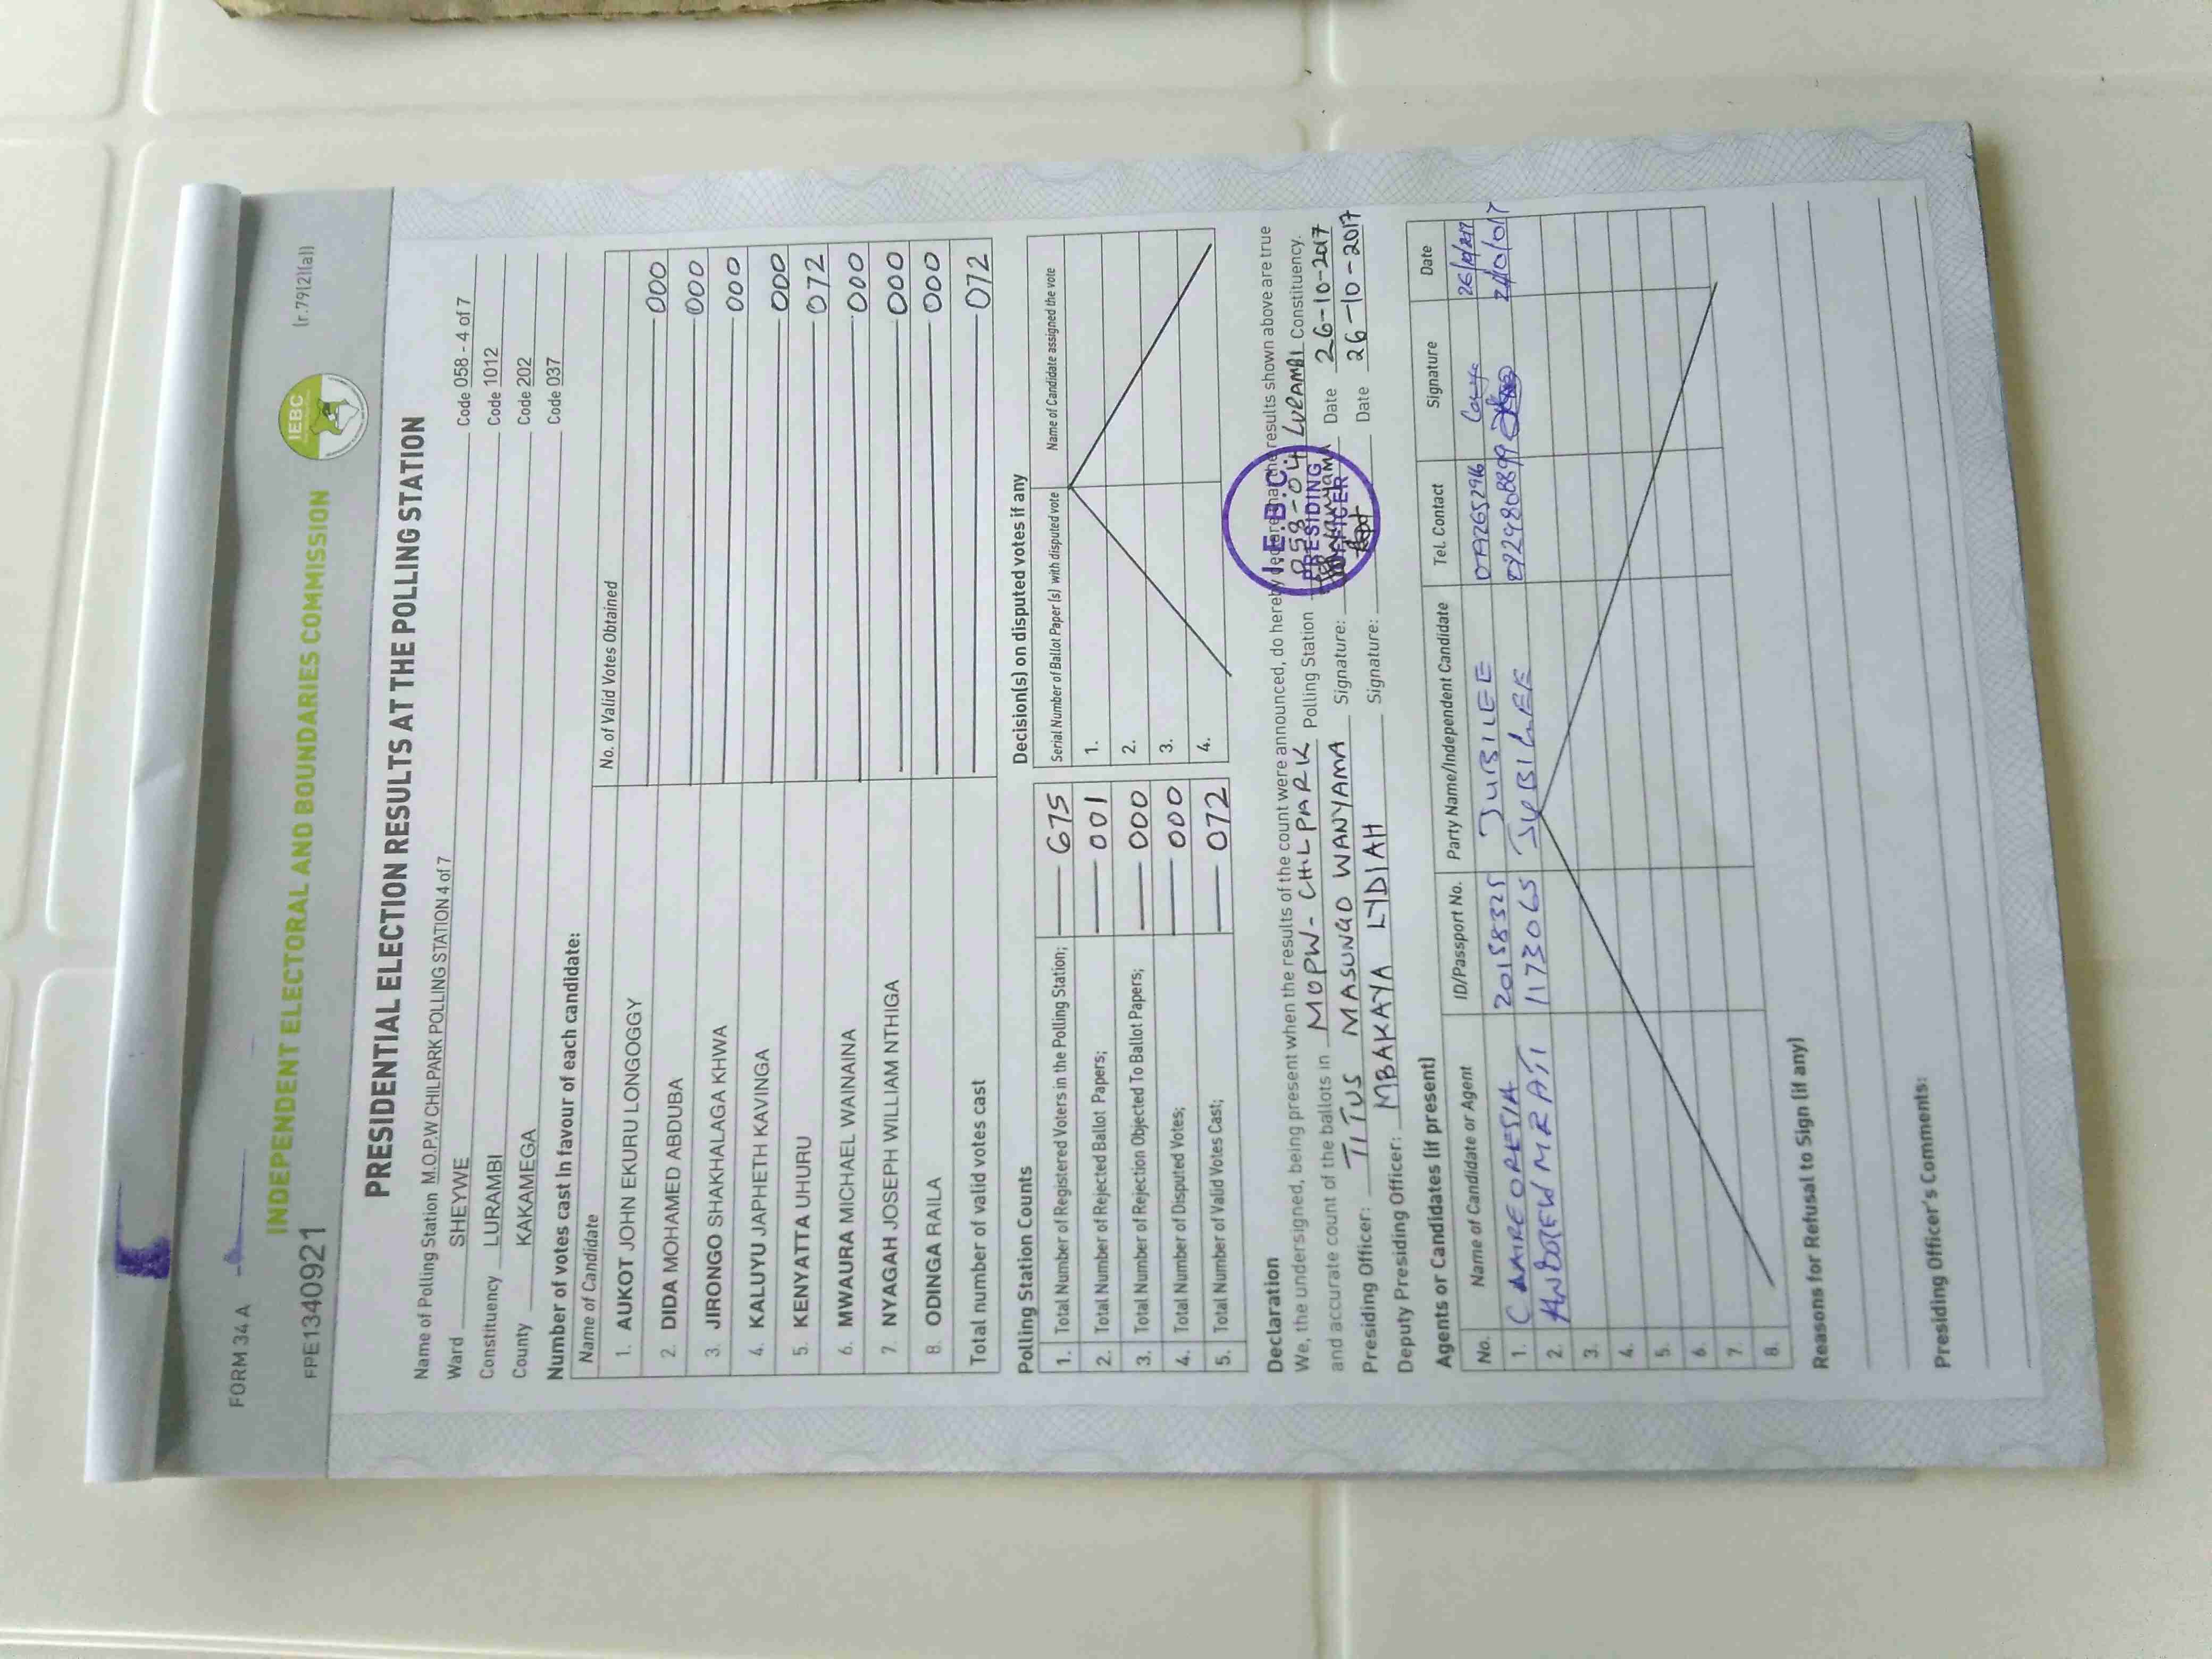 FORM 34 A
INDEPENDENT ELECTORAL AND BOUNDARIES COMMISSION
IEBC
(r.79(2)(a))
FPE1340921
PRESIDENTIAL ELECTION RESULTS AT THE POLLING STATION
Name of Polling Station M.O.P.W CHILPARK POLLING STATION 4 of 7 Code 058 - 4 of 7
Ward SHEYWE Code 1012
Constituency LURAMBI Code 202
County KAKAMEGA Code 037
Number of votes cast in favour of each candidate:
Name of Candidate No. of Valid Votes Obtained
1. AUKOT JOHN EKURU LONGOGGY 000
2. DIDA MOHAMED ABDUBA 000
3. JIRONGO SHAKHALAGA KHWA 000
4. KALUYU JAPHETH KAVINGA 000
5. KENYATTA UHURU 072
6. MWAURA MICHAEL WAINAINA 000
7. NYAGAH JOSEPH WILLIAM NTHIGA 000
8. ODINGA RAILA 000
Total number of valid votes cast 072
Polling Station Counts
1. Total Number of Registered Voters in the Polling Station; 675
2. Total Number of Rejected Ballot Papers; 001
3. Total Number of Rejection Objected To Ballot Papers; 000
4. Total Number of Disputed Votes; 000
5. Total Number of Valid Votes Cast; 072
Decision(s) on disputed votes if any
Serial Number of Ballot Paper (s) with disputed vote Name of Candidate assigned the vote
1.
2.
3.
4.
Declaration
We, the undersigned, being present when the results of the count were announced, do hereby declare that the results shown above are true
and accurate count of the ballots in MOPW - CHILPARK Polling Station 058-04 LURAMBI Constituency.
Presiding Officer: TITUS MASUNGO WANYAMA Signature: Date 26-10-2017
Deputy Presiding Officer: MBAKAYA LYDIAH Signature: Date 26-10-2017
I.E.B.C.
PRESIDING
OFFICER
Agents or Candidates (if present)
No. Name of Candidate or Agent ID/Passport No. Party Name/Independent Candidate Tel. Contact Signature Date
1. 20158325 JUBILEE
2. 1173065 JUBILEE
3.
4.
5.
6.
7.
8.
Reasons for Refusal to Sign (if any)
Presiding Officer's Comments: